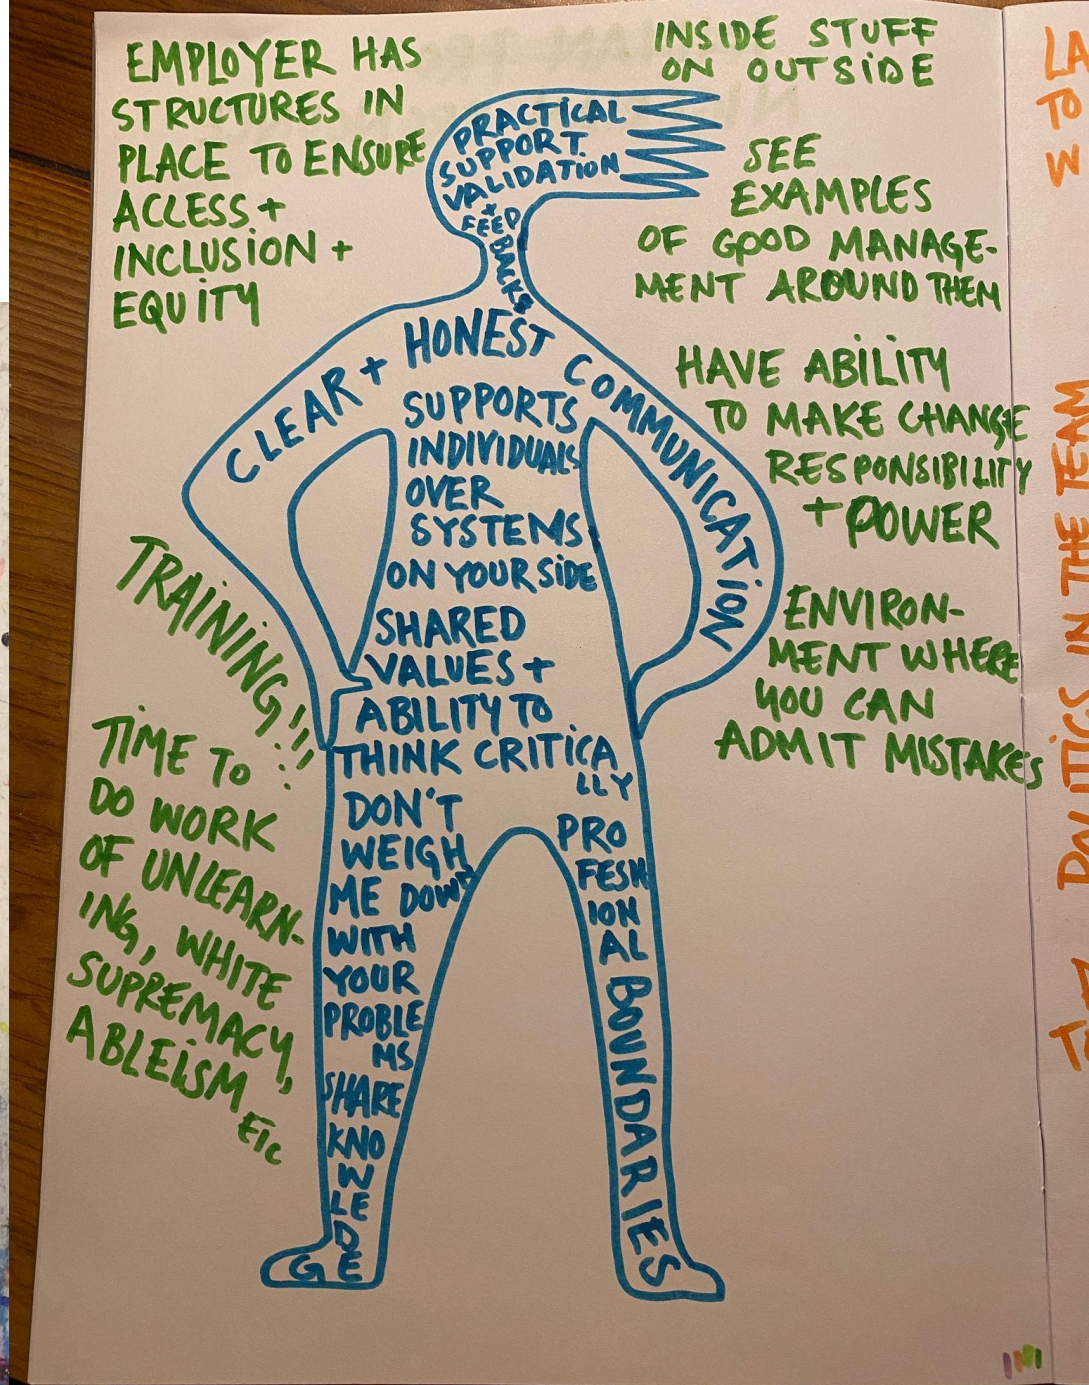 EMPLOYER HAS
STRUCTURES IN
PLACE TO ENSURE
ACCESS +
INCLUSION +
EQUITY
INSIDE STUFF
ON OUTSIDE
SEE
EXAMPLES
OF GOOD MANAGE-
MENT AROUND THEM
HAVE ABILITY
TO MAKE CHANGE
RESPONSIBILITY
+ POWER
ENVIRON-
MENT WHERE
YOU CAN
ADMIT MISTAKES
TRAINING!!!
TIME TO
DO WORK
OF UNLEARN-
ING, WHITE
SUPREMACY,
ABLEISM
ETC
PRACTICAL
SUPPORT
VALIDATION
+
FEED
BACKS
CLEAR + HONEST COMMUNICATION
SUPPORTS
INDIVIDUALS
OVER
SYSTEMS
ON YOUR SIDE
SHARED
VALUES +
ABILITY TO
THINK CRITICA
LLY
DON'T
WEIGH
ME DOWN
WITH
YOUR
PROBLE
MS
SHARE
KNO
W
LE
D
GE
PRO
FESH
ION
AL
BOUNDARIES
LA
TO
W
POLITICS IN THE TEAM